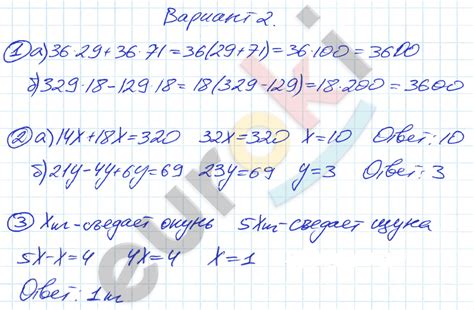 Вариант 2.
① а) 36·29+36·71=36(29+71)=36·100=3600
б) 329·18-129·18=18(329-129)=18·200=3600
② а) 14x+18x=320 32x=320 x=10 Ответ: 10
б) 21y-4y+6y=69 23y=69 y=3 Ответ: 3
③ Xт-съедает окунь 5Xт-съедает щука
5x-x=4 4x=4 x=1
Ответ: 1т
euroki